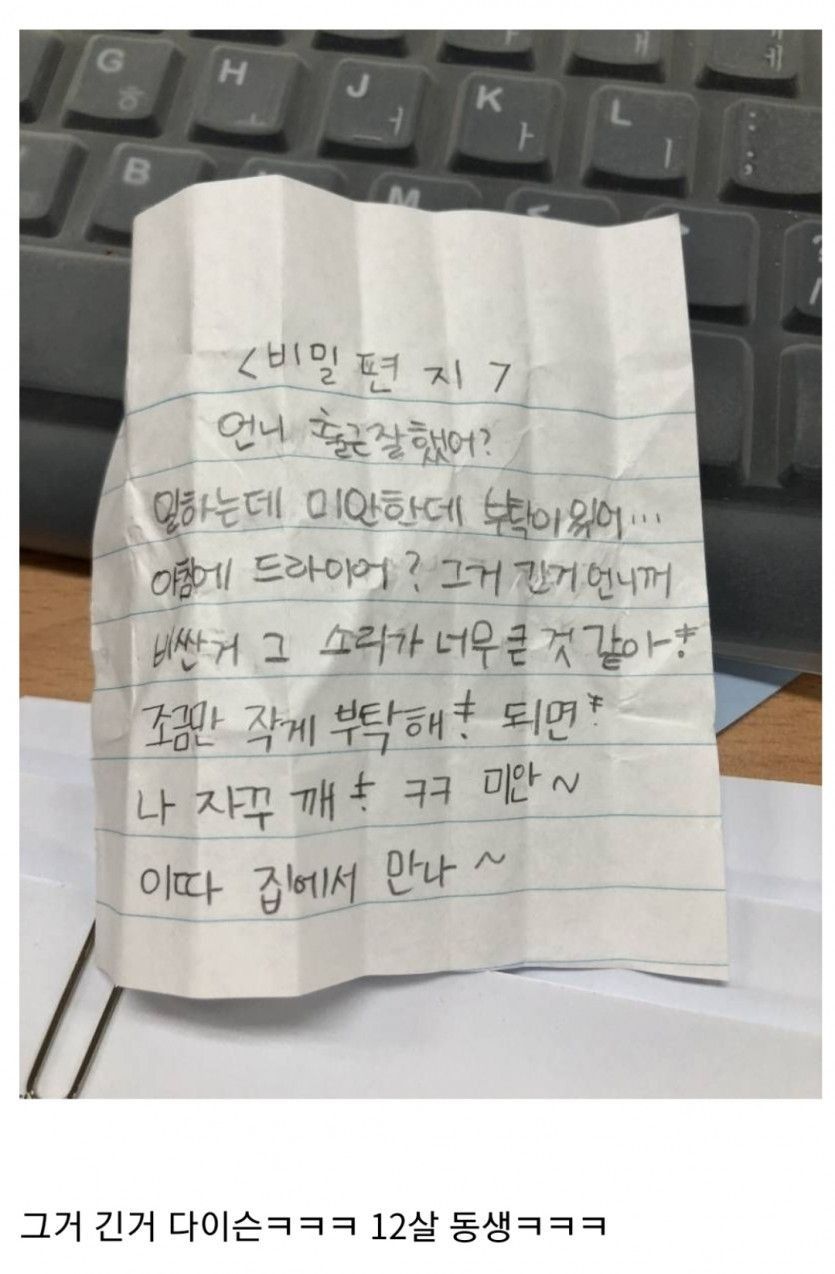 G ㅎ H ㅗ J ㅓ K ㅏ L ㅣ : ;
B M
<비밀 편 지>
언니 출근잘했어?
일하는데 미안한데 부탁이 있어...
아침에 드라이어? 그거 긴거 언니꺼
비싼거 그 소리가 너무 큰 것 같아ㅎ
조금만 작게 부탁해ㅎ 되면ㅎ
나 자꾸 깨ㅎ ㅋㅋ 미안~
이따 집에서 만나~
그거 긴거 다이슨ㅋㅋㅋ 12살 동생ㅋㅋㅋ